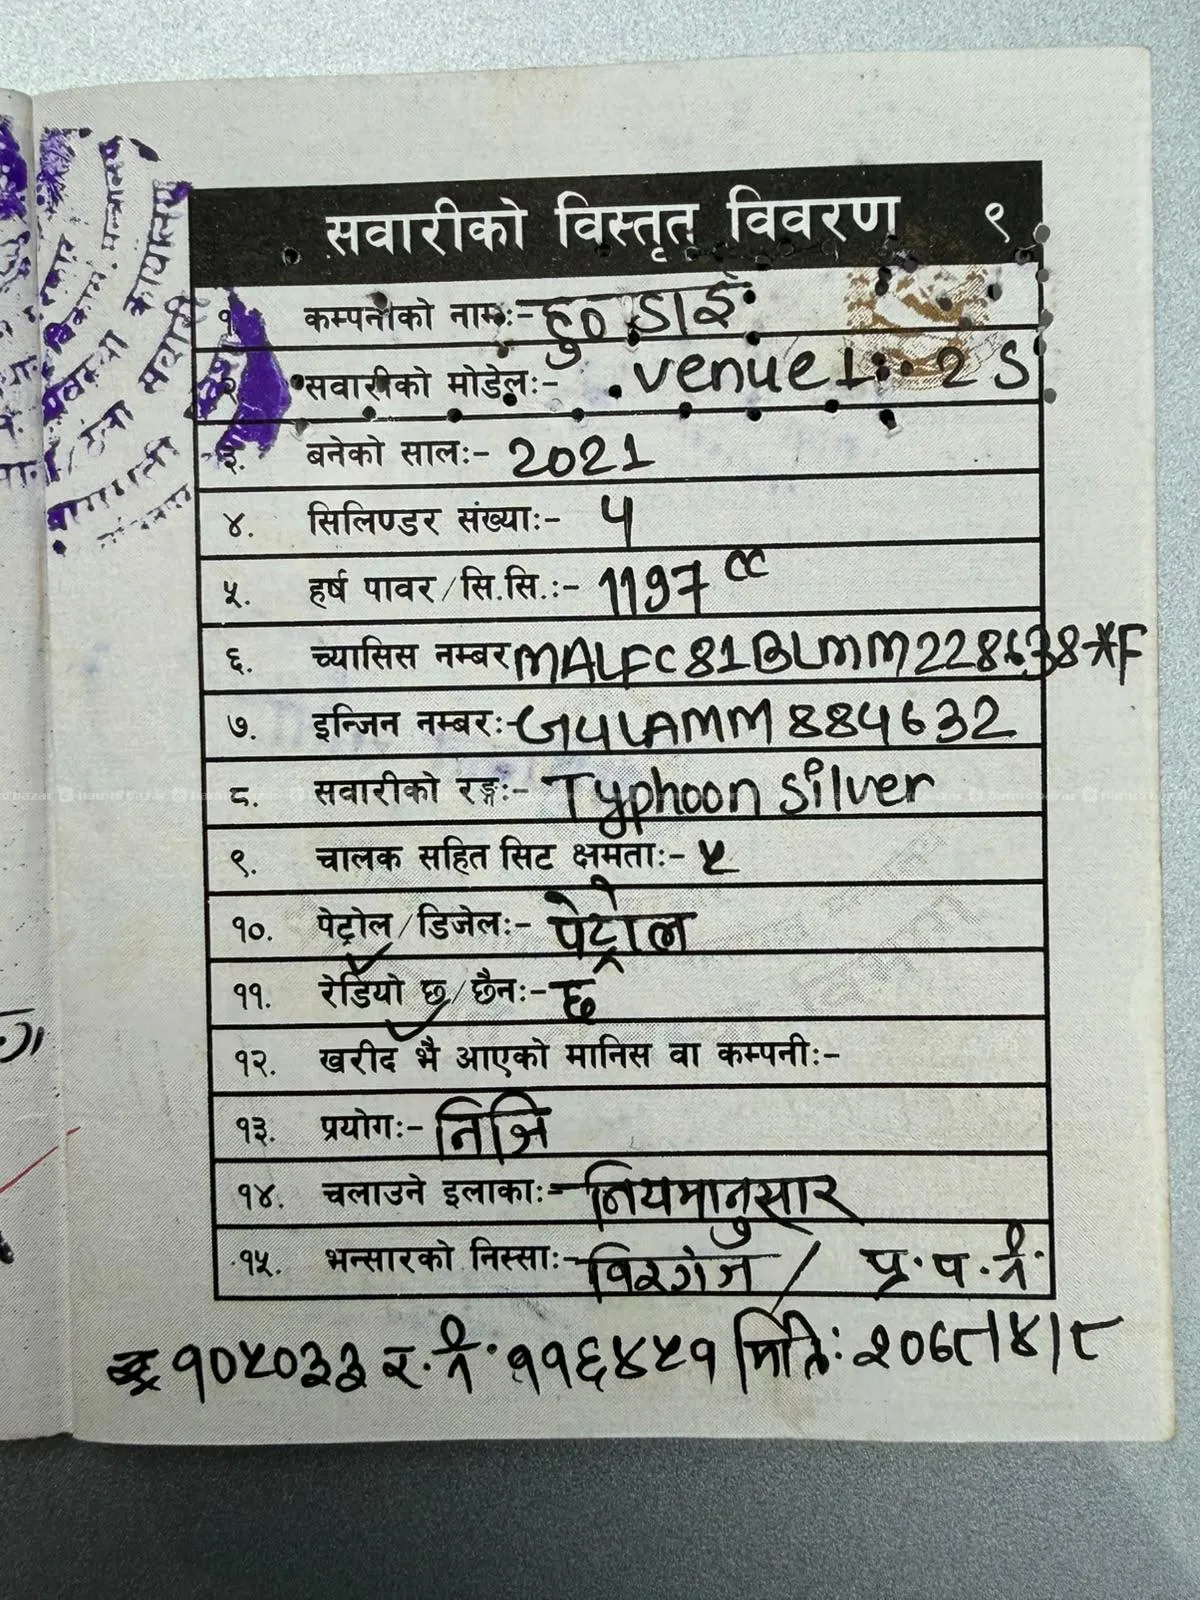 सवारीको विस्तृत विवरण ९
१. कम्पनीको नामः- हुन्डाई
२. सवारीको मोडेलः- venue 1.2 S
३. बनेको सालः- 2021
४. सिलिण्डर संख्याः- 4
५. हर्ष पावर/सि.सि.ः- 1197 cc
६. च्यासिस नम्बर MALFC81BLMM228638*F
७. इन्जिन नम्बरः- G4LAMM884632
८. सवारीको रङ्गः- Typhoon silver
९. चालक सहित सिट क्षमताः- ५
१०. पेट्रोल/डिजेलः- पेट्रोल
११. रेडियो छ/छैनः- छ
१२. खरीद भै आएको मानिस वा कम्पनीः-
१३. प्रयोगः- निजि
१४. चलाउने इलाकाः- नियमानुसार
१५. भन्सारको निस्साः- विरगंज / प्र.प.नं.
१०५०३३ र.नं. ११६४५१ मितिः २०७८।४।८